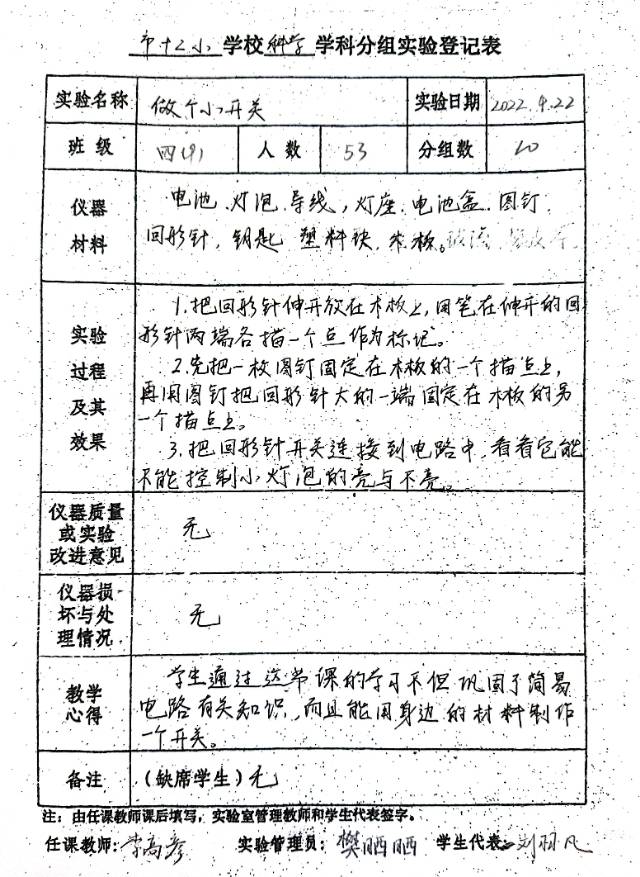 市十二小 学校 科学 学科分组实验登记表
实验名称 做个小开关 实验日期 2022.9.22
班级 四(9) 人数 53 分组数 10
仪器材料 电池、灯泡、导线,灯座、电池盒、图钉、
回形针,钥匙、塑料块、木板。
实验过程及其效果 1.把回形针伸开放在木板上,用笔在伸开的回
形针两端各描一个点作为标记。
2.先把一枚图钉固定在木板的一个描点上,
再用图钉把回形针大的一端固定在木板的另
一个描点上。
3.把回形针开关连接到电路中,看看它能
不能控制小灯泡的亮与不亮。
仪器质量或实验改进意见 无
仪器损坏与处理情况 无
教学心得 学生通过这节课的学习不但巩固了简易
电路有关知识,而且能用身边的材料制作
一个开关。
备注 (缺席学生)无
注:由任课教师课后填写,实验室管理教师和学生代表签字。
任课教师:李高彦 实验管理员:樊晒晒 学生代表:刘羽凡